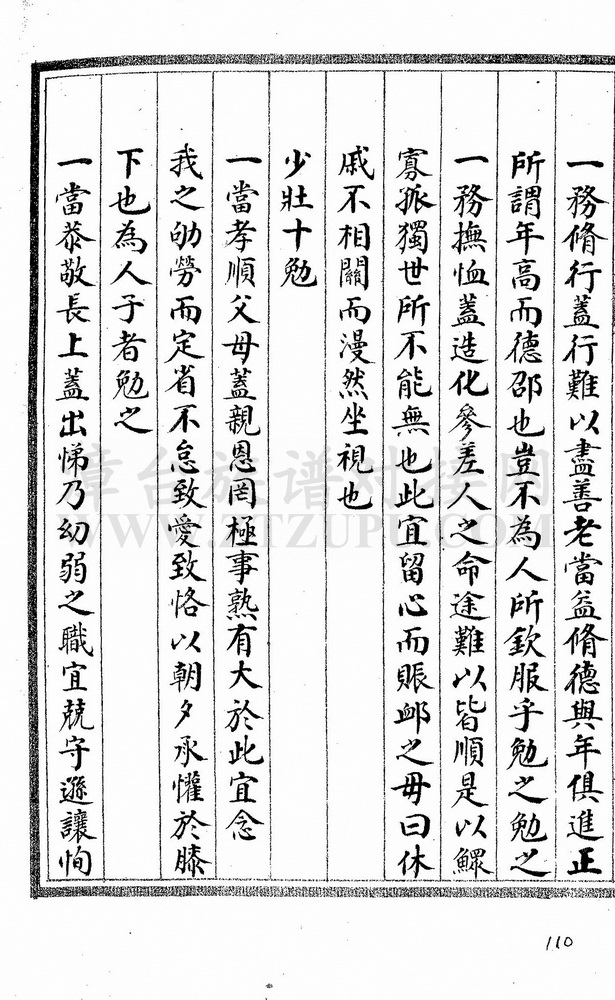 一務脩行蓋行難以盡善老當益脩德與年俱進正
所謂年高而德邵也豈不為人所欽服乎勉之勉之
一務撫恤蓋造化參差人之命途難以皆順是以鰥
寡孤獨世所不能無也此宜留心而賑卹之毋曰休
戚不相關而漫然坐視也
少壯十勉
一當孝順父母蓋親恩罔極事熟有大於此宜念
我之劬勞而定省不怠致愛致恪以朝夕承懽於膝
下也為人子者勉之
一當恭敬長上蓋出悌乃幼弱之職宜兢守遜讓恂
章台族谱对接网
WWW.ZTZUPU.COM
110